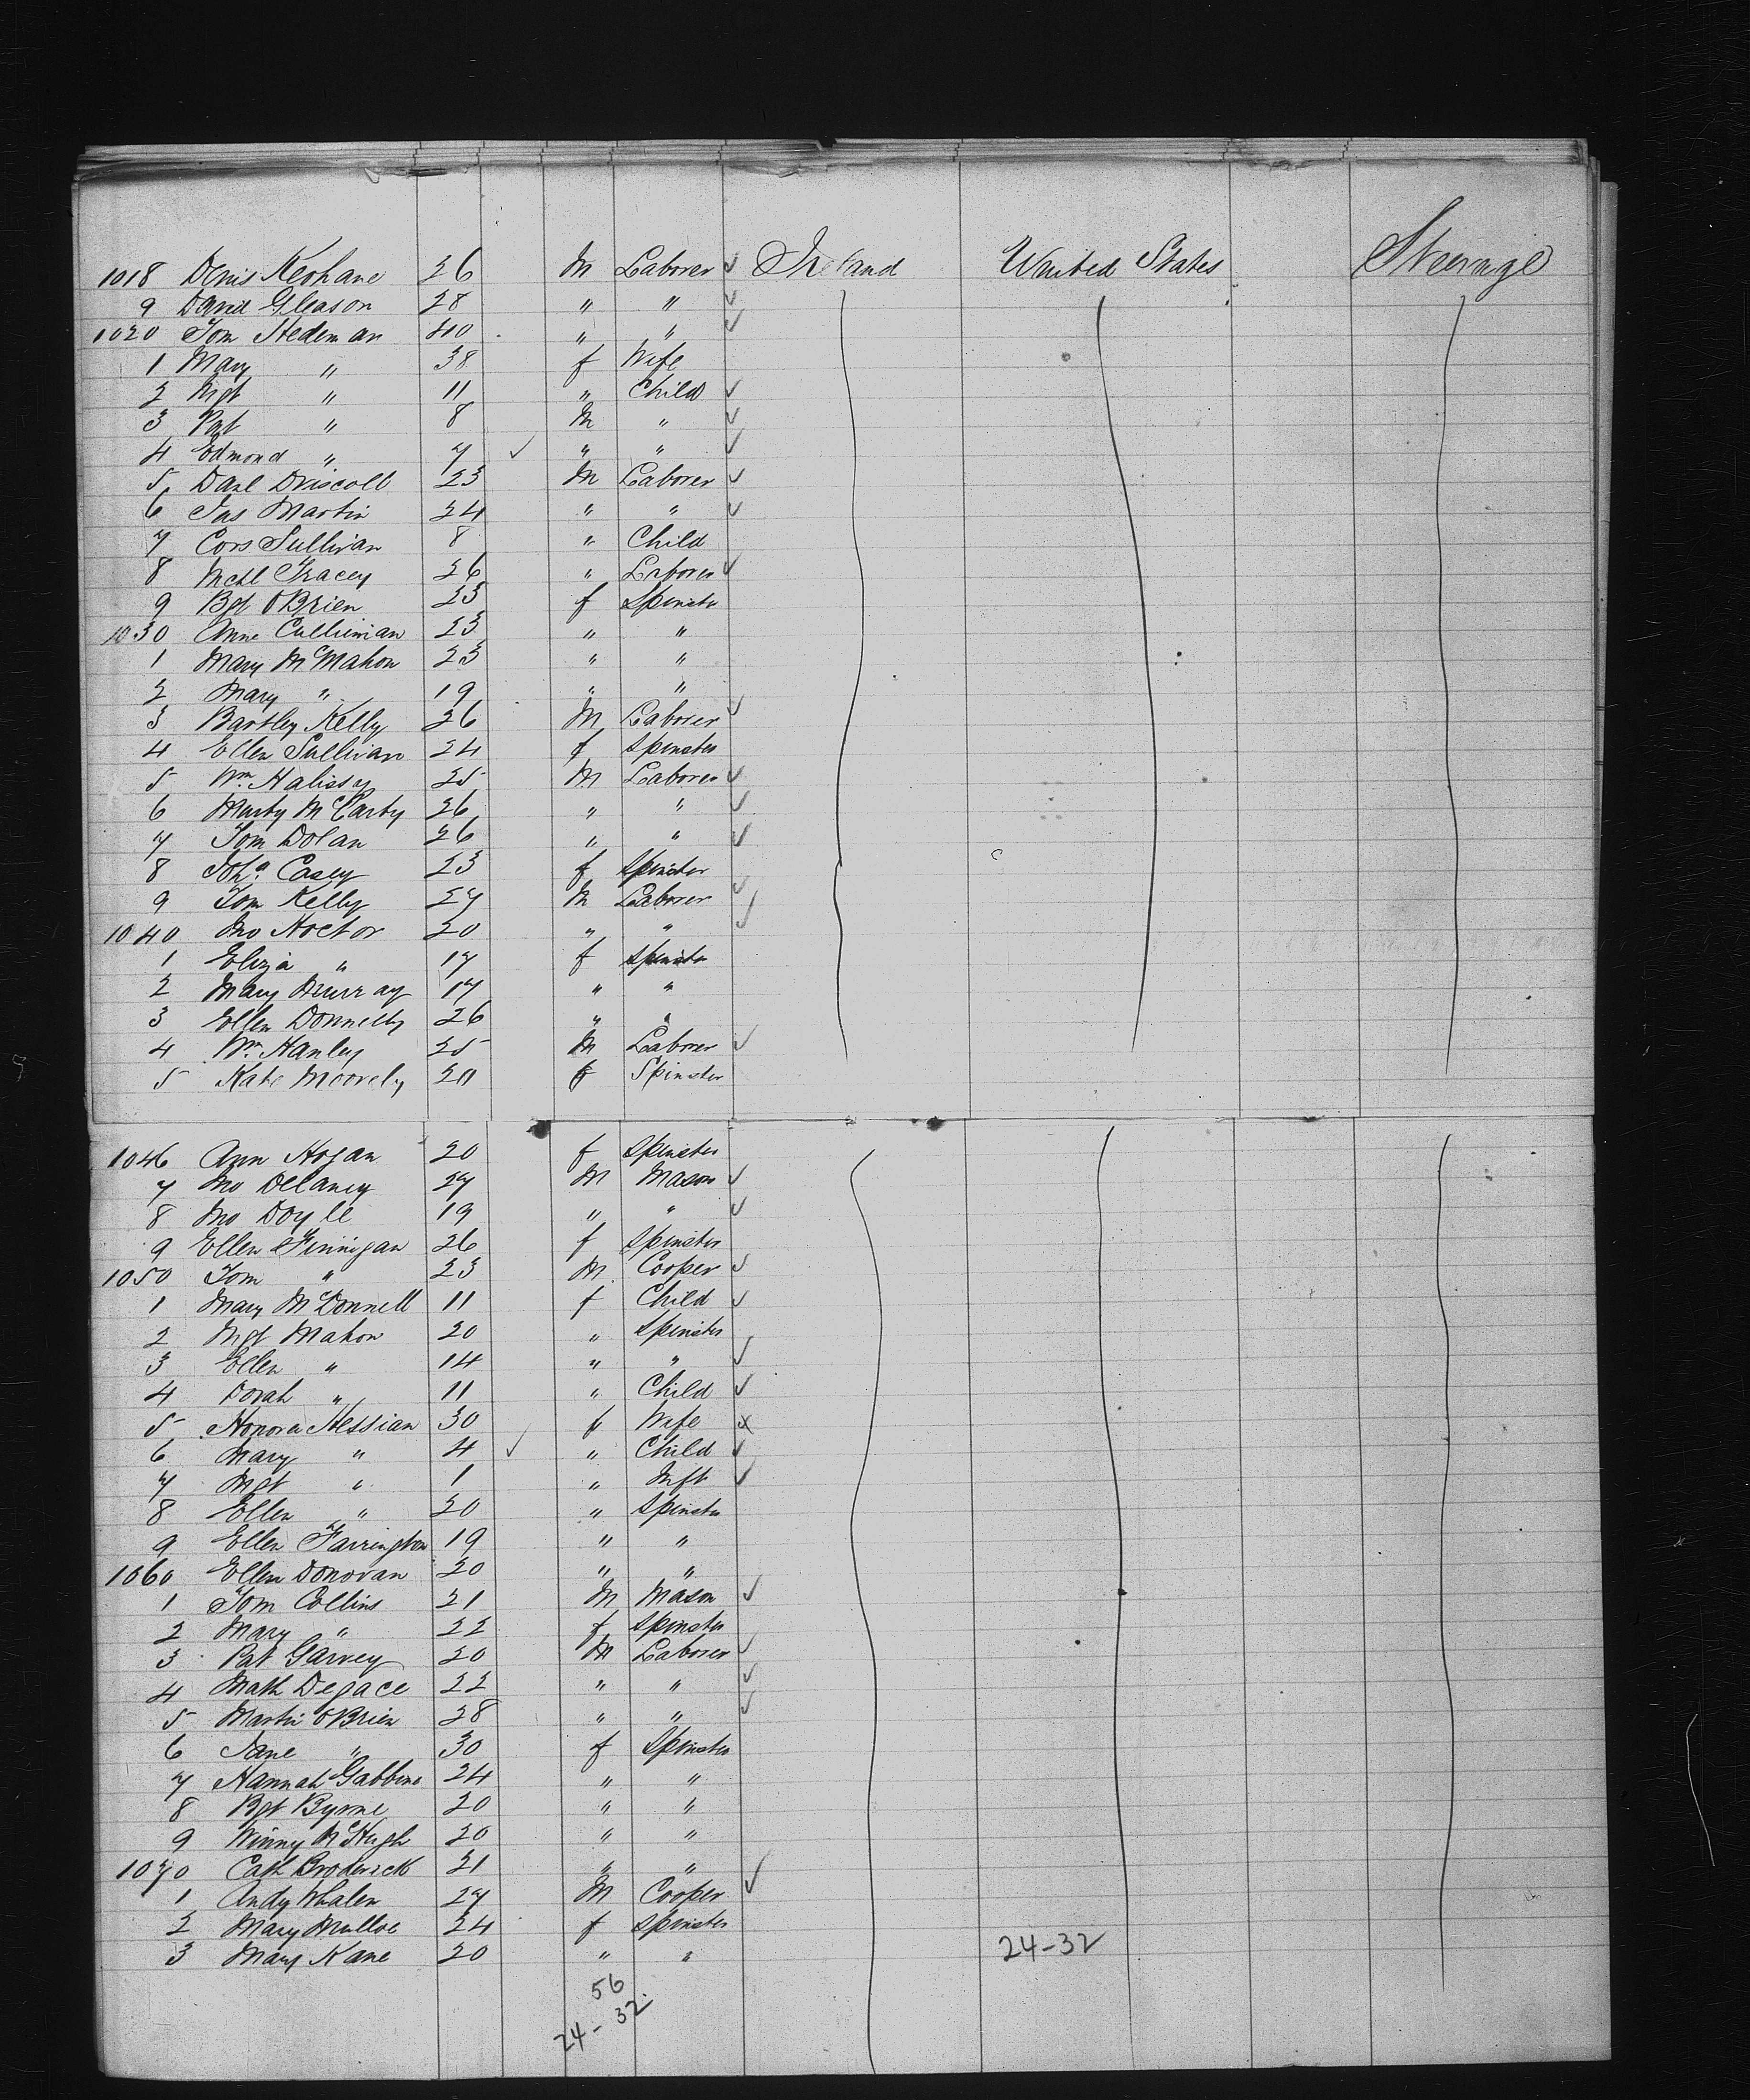 1018 Denis Keohane 26 M Laborer ✓ Ireland United States Steerage
9 David Gleason 28 " " ✓
1020 Tom Stedeman 40 " " ✓
1 Mary " 38 f Wife
2 Mgt " 11 " Child ✓
3 Pat " 8 M " ✓
4 Edmond " 7 ✓ " " ✓
5 Danl Driscoll 23 M Laborer ✓
6 Jas Martin 24 " " ✓
7 Cors Sullivan 8 " Child
8 Mchl Gracey 26 " Laborer ✓
9 Bgt OBrien 23 f Spinster
1030 Anne Cullinian 23 " "
1 Mary McMahon 23 " "
2 Mary " 19 " "
3 Bartley Kelly 26 M Laborer ✓
4 Ellen Sullivan 24 f Spinster
5 Wm Halissy 25 M Laborer ✓
6 Marty McCarty 26 " " ✓
7 Tom Dolan 26 " " ✓
8 Joha Casey 23 f Spinster
9 Tom Kelly 27 M Laborer ✓
1040 Jno Hoctor 20 " " ✓
1 Eliza " 17 f Spinster
2 Mary Murray 17 " "
3 Ellen Donnelly 26 " "
4 Wm Hanley 25 M Laborer ✓
5 Kate 20 f Spinster
1046 Ann Hogan 20 f Spinster
7 Jno Delaney 27 M Mason ✓
8 Jno Doyle 19 " " ✓
9 Ellen Finnigan 26 f Spinster
1050 Tom " 23 M Cooper ✓
1 Mary McDonnell 11 f Child ✓
2 Mgt Mahon 20 " Spinster
3 Ellen " 14 " " ✓
4 Dorah " 11 " Child ✓
5 Honora Hessian 30 f Wife x
6 Mary " 4 ✓ " Child ✓
7 Mgt " 1 " Inft ✓
8 Ellen " 20 " Spinster
9 Ellen Farrington 19 " "
1060 Ellen Donovan 20 " "
1 Tom Collins 21 M Mason ✓
2 Mary " 22 f Spinster
3 Pat Garvey 20 M Laborer ✓
4 Math Degace 22 " " ✓
5 Martin OBrien 28 " " ✓
6 Jane " 30 f Spinster
7 Hannah Gabbins 24 " "
8 Bgt Byrne 20 " "
9 Winny McHugh 20 " "
1070 Cath Broderick 21 " "
1 Andy Whalen 27 M Cooper ✓
2 Mary Mulloe 24 f Spinster
3 Mary Kane 20 " "
24-32
56
24-32